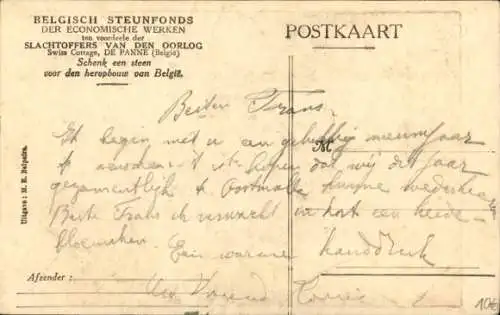 BELGISCH STEUNFONDS
DER ECONOMISCHE WERKEN
ten voordeele der
SLACHTOFFERS VAN DEN OORLOG
Swiss Cottage, DE PANNE (België)
Schenk een steen
voor den heropbouw van België.
POSTKAART
Uitgave: M. E. Belpaire.
Besten Frans,
Ik begin met u een gelukkig nieuwjaar
te wenschen hopen dat wij dit jaar
M
gezamentlijk te Oostmalle kunne
Beste Frans ik verwacht in kort een heide-
bloemeken. Een warmen handdruk
Afzender:
Uw Vriend
10€